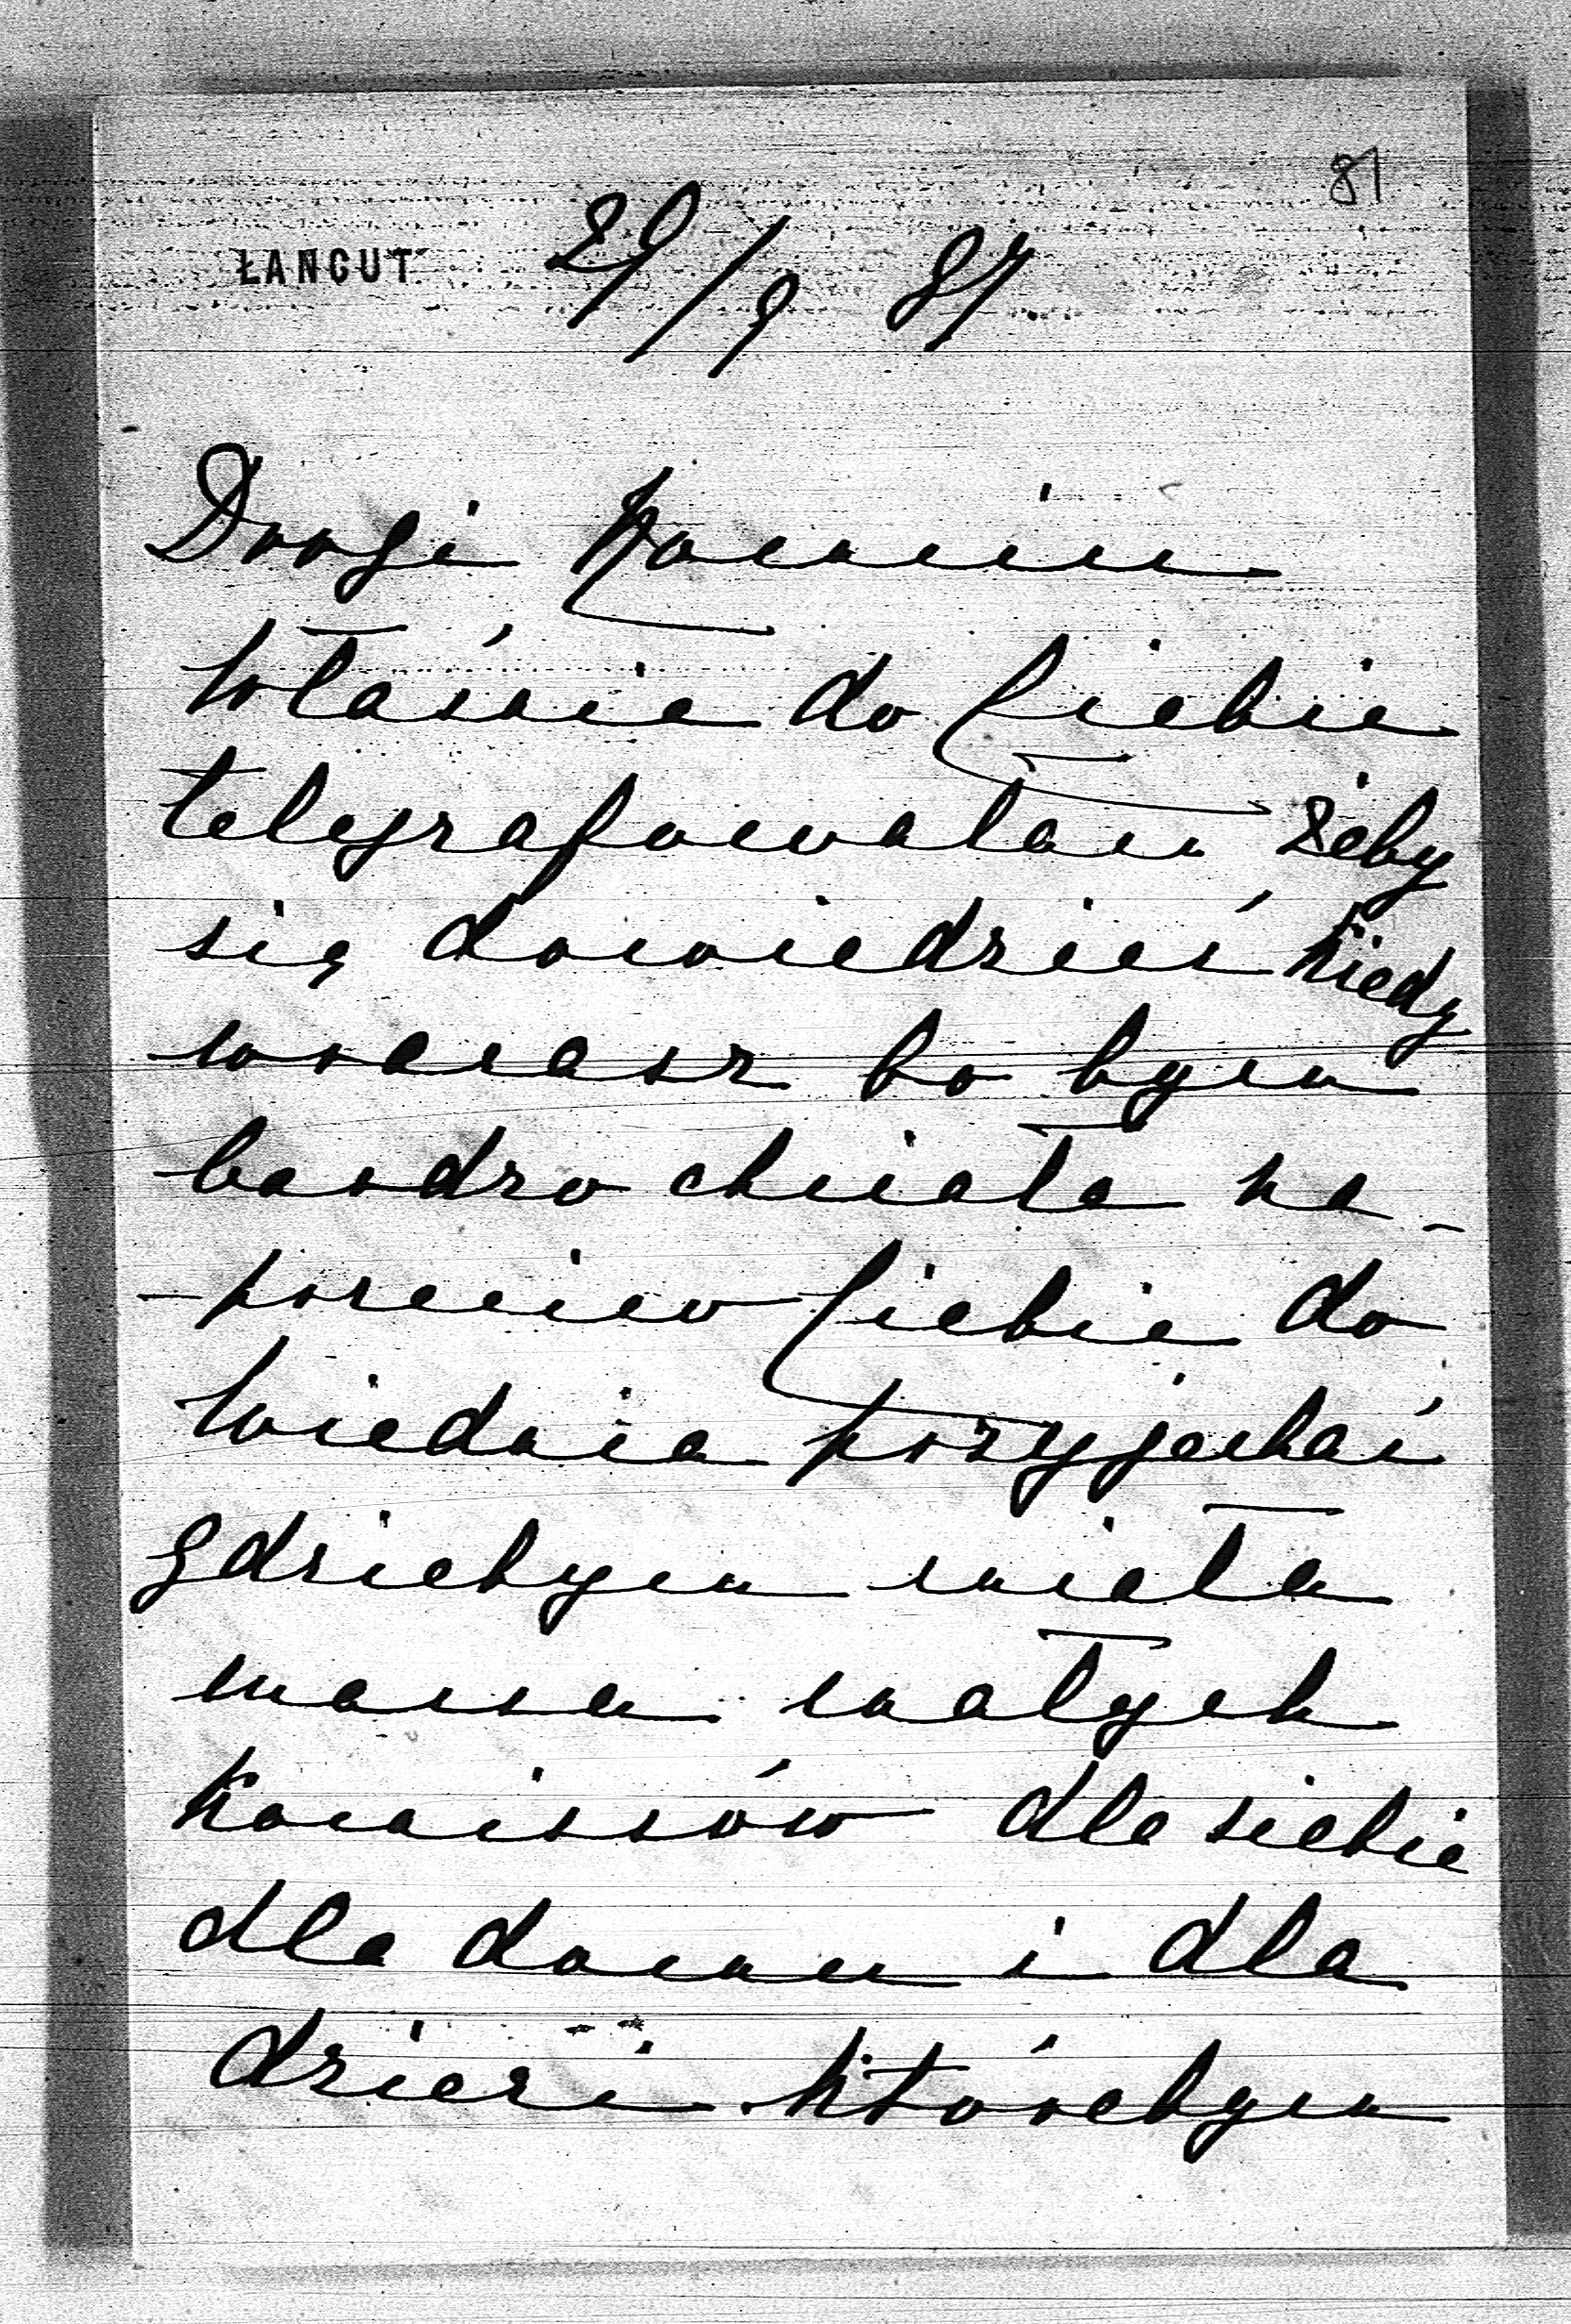 81
ŁANCUT 29/9 87
Drogi Romciu
Właśnie do Ciebie
telegrafowałam żeby
się dowiedzieć kiedy
wracasz bo bym
bardzo chciała na-
-przeciw Ciebie do
Wiednia przyjechać
gdziebym miała
massa małych
komissów dla siebie
dla domu i dla
dzieci którebym